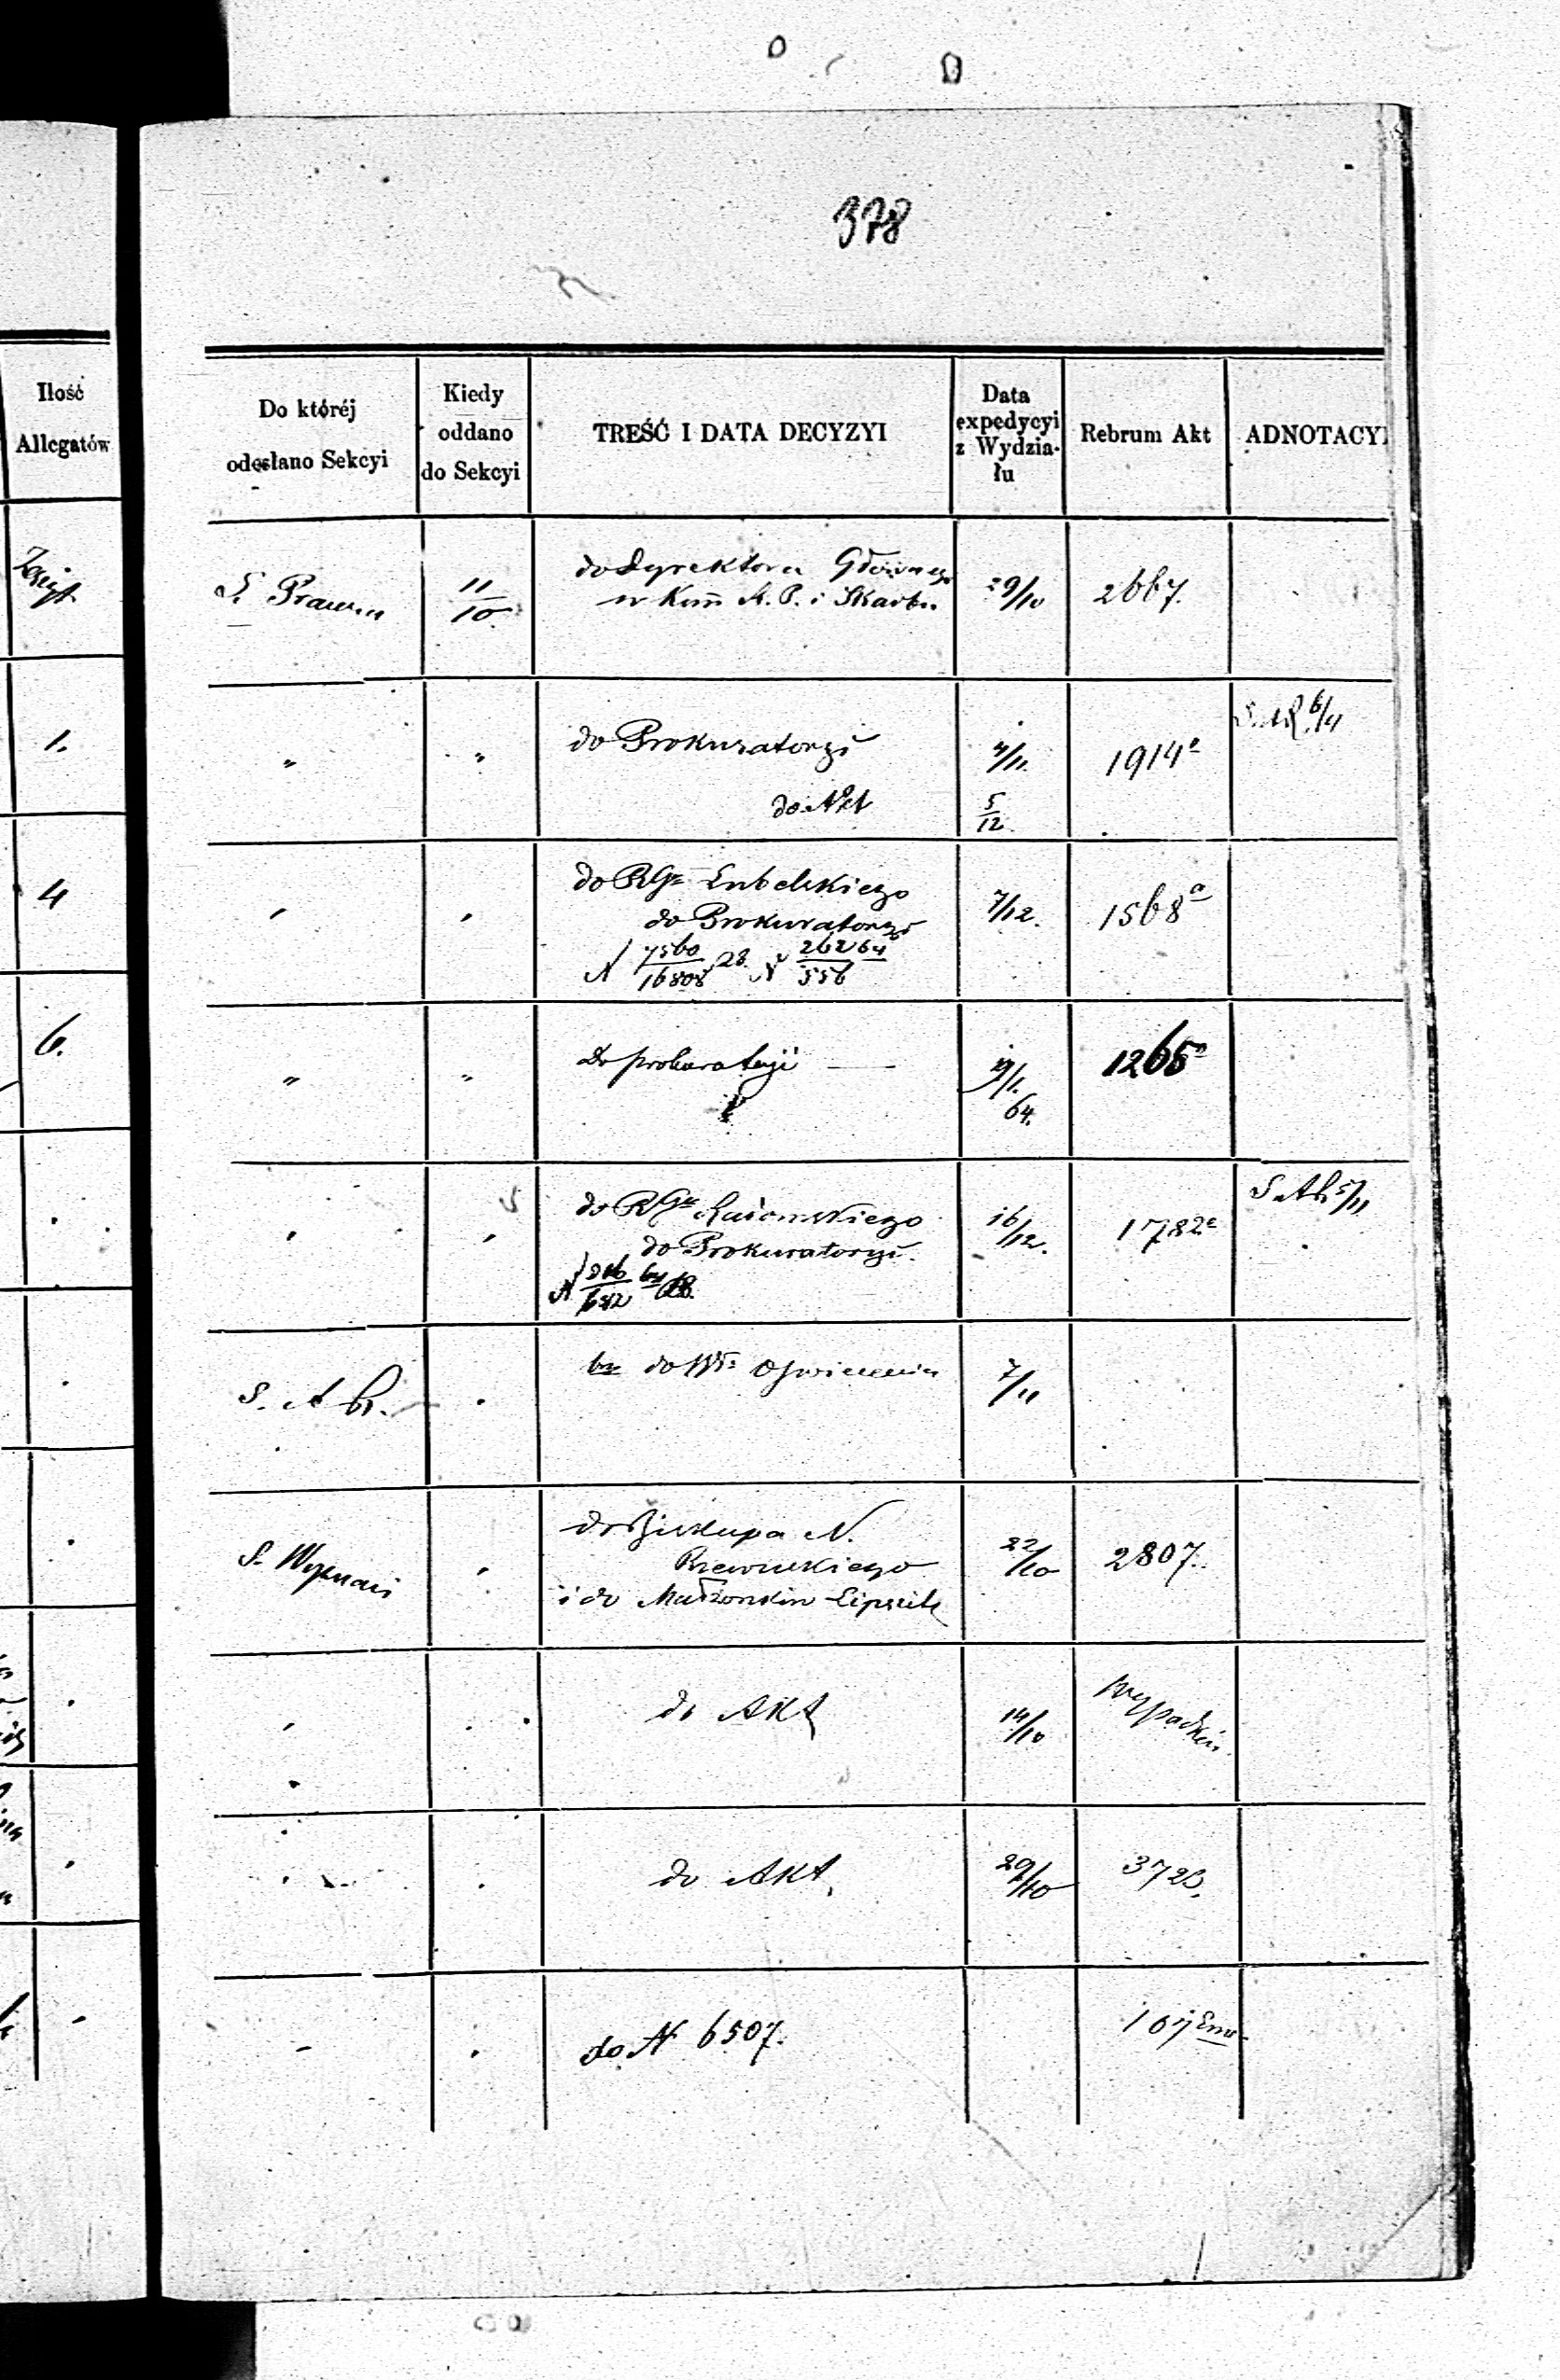 378
Ilość
Allegatów
Do któréj
odesłano Sekcyi
Kiedy
oddano
do Sekcyi
TREŚĆ I DATA DECYZYI
Data
expedycyi
z Wydzia-
łu
Rebrum Akt
ADNOTACYI
S. Prawna
11/10
do Dyrektora Głównego
w Kom̄ R. P. i Skarbu
29/10
2667.
1.
"
"
do Prokuratoryi
4/11.
1914
6/11
do Akt
5/12
4
"
"
do RGu Lubelskiego
do Prokuratoryi
N 7560/16808 28. N 26264/556
7/12.
1568a
6.
"
"
Do prokuratoryi
64.
1265
"
"
do RGu Radomskiego
do Prokuratoryi.
16/12.
1782
S. A
do Oświecenia
7/11
S. Wyznań
do Biskupa N.
Rzewuskiego
i do Małżonków
22/10
2807.
do Akt
14/10
wypadków
do Akt
29/10
372
do N 6507.